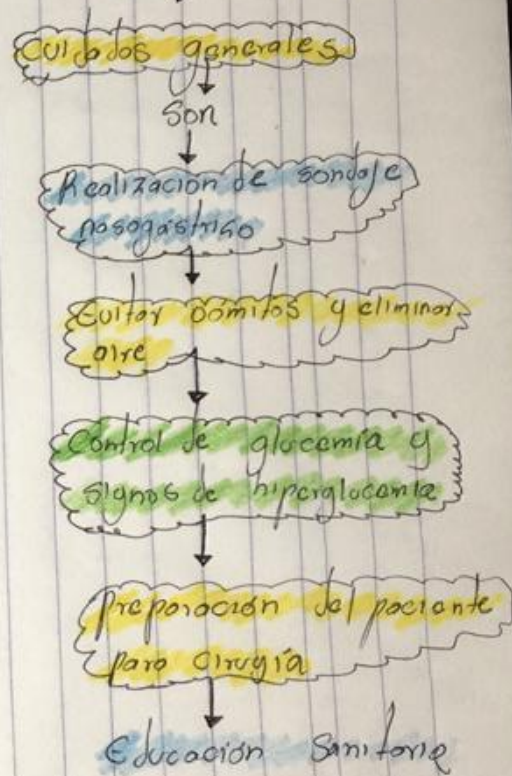 Cuidados generales
Son
Realización de sondaje
nasogástrico
Evitar vómitos y eliminar
aire
Control de glucemia y
signos de hiperglucemia
Preparación del paciente
para cirugía
Educación Sanitaria